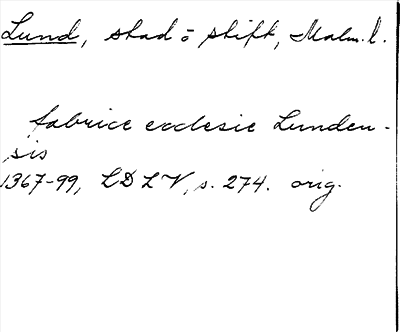 Lund, stad o stift, Malm. l.
fabrice ecclesie Lunden-
sis
1367-99, LDLV, s. 274. orig.